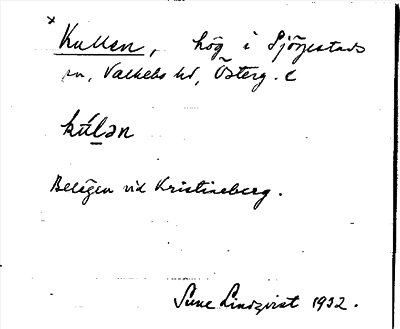 x
Kullen, hög i Sjögestads
sn, Valkebo hd, Österg. l
kúlən
Belägen vid Kristineberg.
Sune Lindqvist 1932.